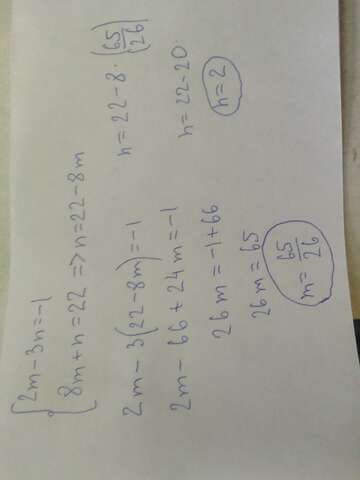 2m-3n=-1
8m+n=22 => n=22-8m
2m-3(22-8m)=-1
2m-66+24m=-1
26m=-1+66
26m=65
m=65/26
n=22-8·(65/26)
n=22-20
n=2